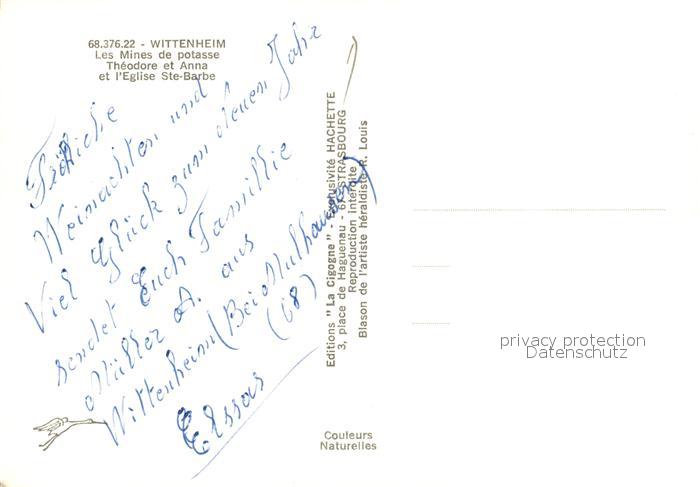 68.376.22 - WITTENHEIM
Les Mines de potasse
Théodore et Anna
et l'Eglise Ste-Barbe
Fröhliche
Weinachten und
Viel Glück zum neuen Jahr
sendet Euch Familie
Müller A. aus
Wittenheim (Bei Mulhausen)
(68)
Elssas
Editions "La Cigogne" - Exclusivité HACHETTE
3, place de Haguenau - 67-STRASBOURG
Reproduction interdite
Blason de l'artiste héraldiste R. Louis
Couleurs
Naturelles
privacy protection
Datenschutz